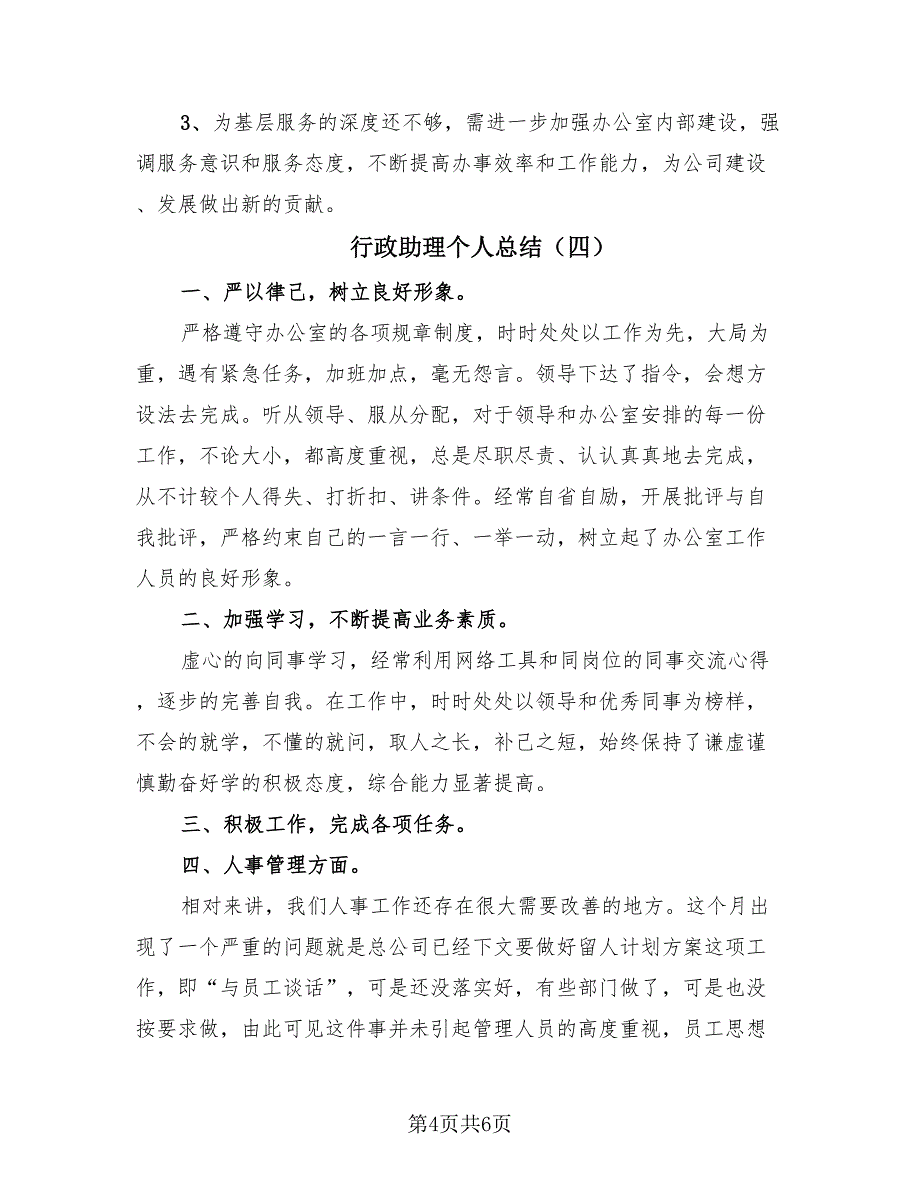 3、为基层服务的深度还不够，需进一步加强办公室内部建设，强
调服务意识和服务态度，不断提高办事效率和工作能力，为公司建设
、发展做出新的贡献。
行政助理个人总结（四）
一、严以律己，树立良好形象。
严格遵守办公室的各项规章制度，时时处处以工作为先，大局为
重，遇有紧急任务，加班加点，毫无怨言。领导下达了指令，会想方
设法去完成。听从领导、服从分配，对于领导和办公室安排的每一份
工作，不论大小，都高度重视，总是尽职尽责、认认真真地去完成，
从不计较个人得失、打折扣、讲条件。经常自省自励，开展批评与自
我批评，严格约束自己的一言一行、一举一动，树立起了办公室工作
人员的良好形象。
二、加强学习，不断提高业务素质。
虚心的向同事学习，经常利用网络工具和同岗位的同事交流心得
，逐步的完善自我。在工作中，时时处处以领导和优秀同事为榜样，
不会的就学，不懂的就问，取人之长，补己之短，始终保持了谦虚谨
慎勤奋好学的积极态度，综合能力显著提高。
三、积极工作，完成各项任务。
四、人事管理方面。
相对来讲，我们人事工作还存在很大需要改善的地方。这个月出
现了一个严重的问题就是总公司已经下文要做好留人计划方案这项工
作，即“与员工谈话”，可是还没落实好，有些部门做了，可是也没
按要求做，由此可见这件事并未引起管理人员的高度重视，员工思想
第4页共6页